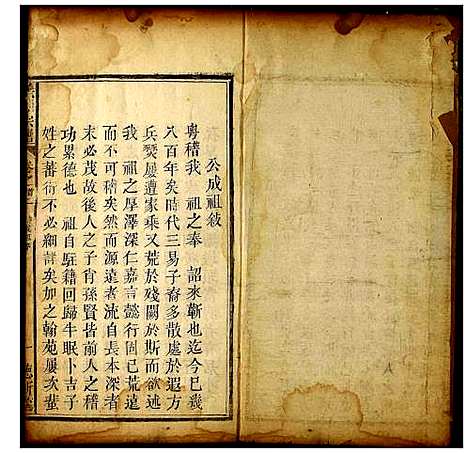 公成祖敍
粵稽我 祖之奉 詔來蘄也迄今已幾
八百年矣時代三易子裔多散處於遐方
兵燹屢遭家乘又荒於殘闕於斯而欲述
我 祖之厚澤深仁嘉言懿行固已荒遠
而不可稽矣然而源遠者流自長本深者
末必茂故後人之子肖孫賢皆前人之積
功累德也 祖自駐籍回歸牛眠卜吉子
姓之蕃衍不必細詳矣加之翰苑屢次蜚